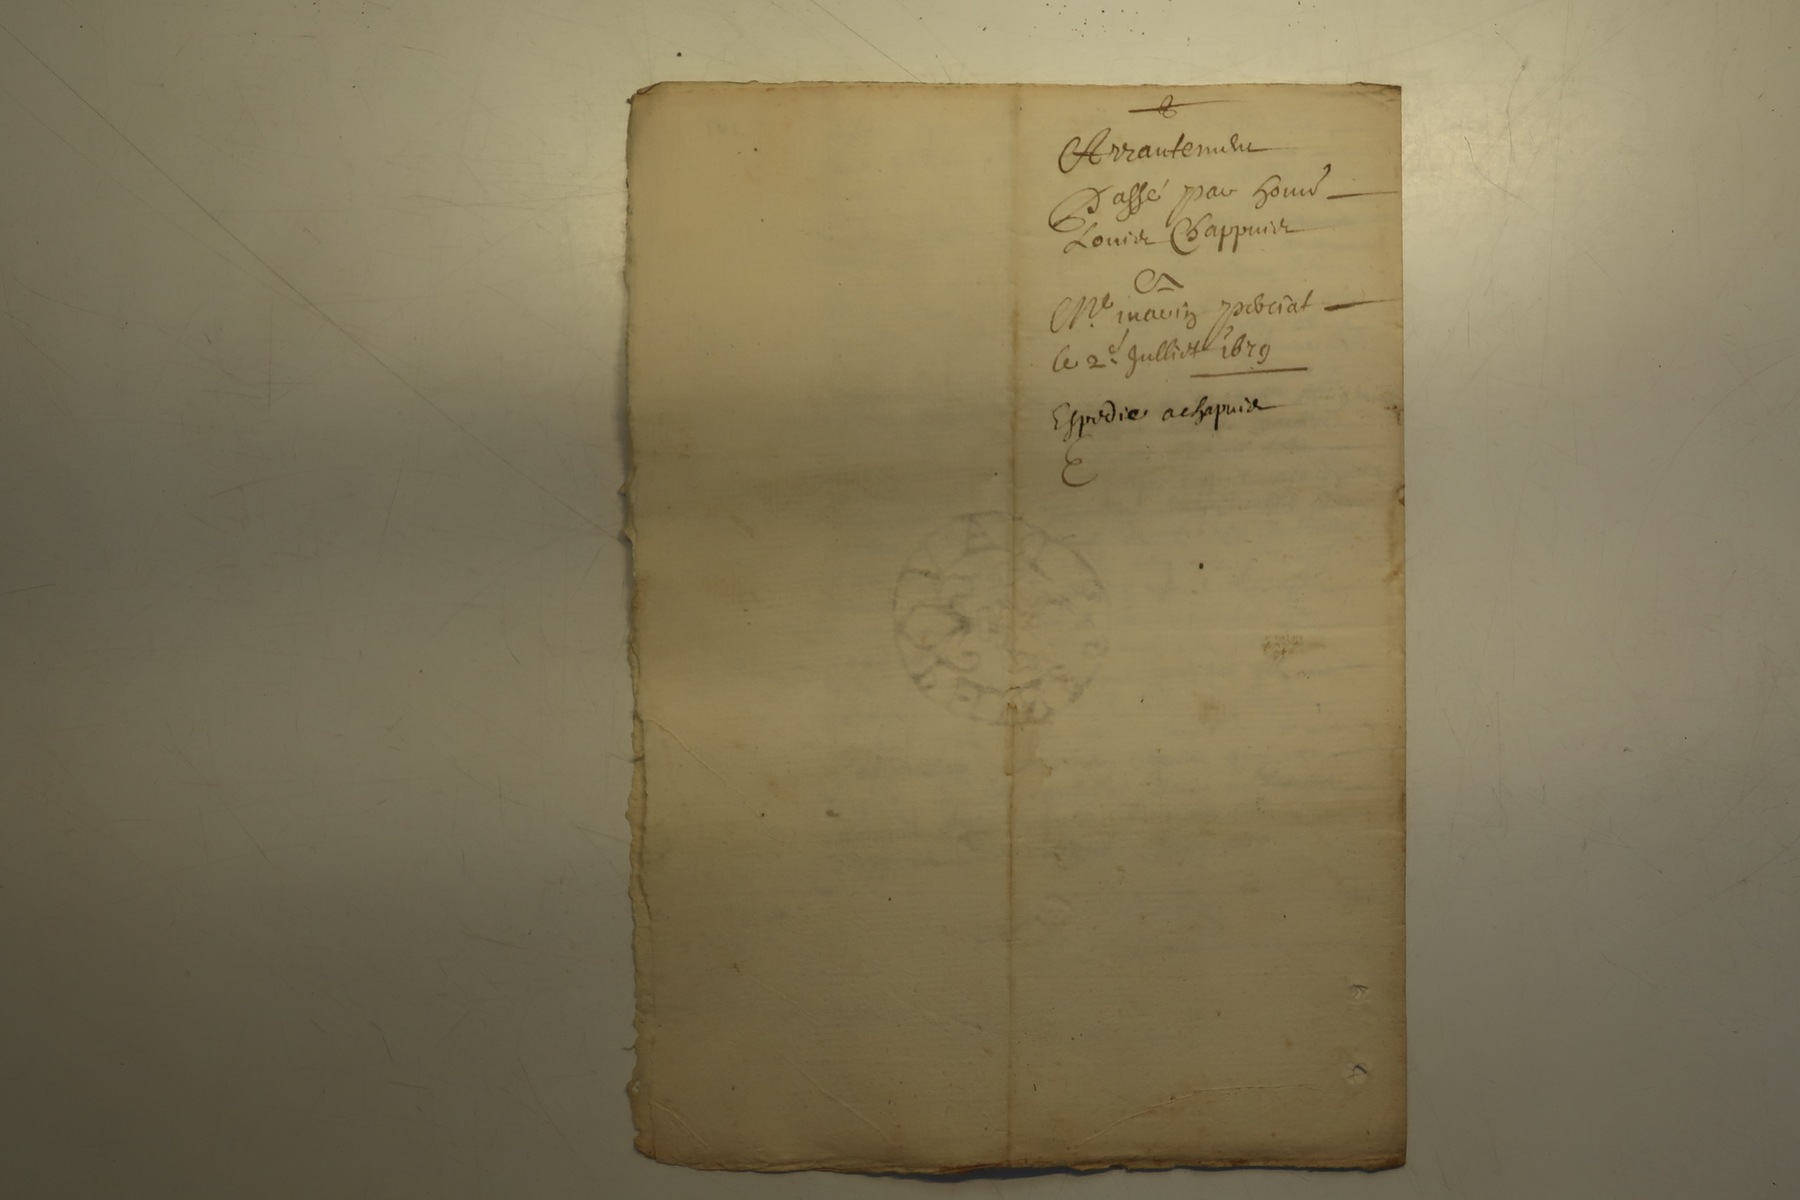 Arrantement
Passé par hono
Louis Chappuis
A
Mr. marin perriat
le 2e Julliet 1679
Espedie a chapuis
E